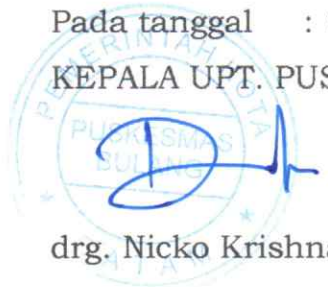 Pada tanggal :
KEPALA UPT. PUS
PEMERINTAH KOTA
PUSKESMAS
BULANG
BATAM
drg. Nicko Krishna